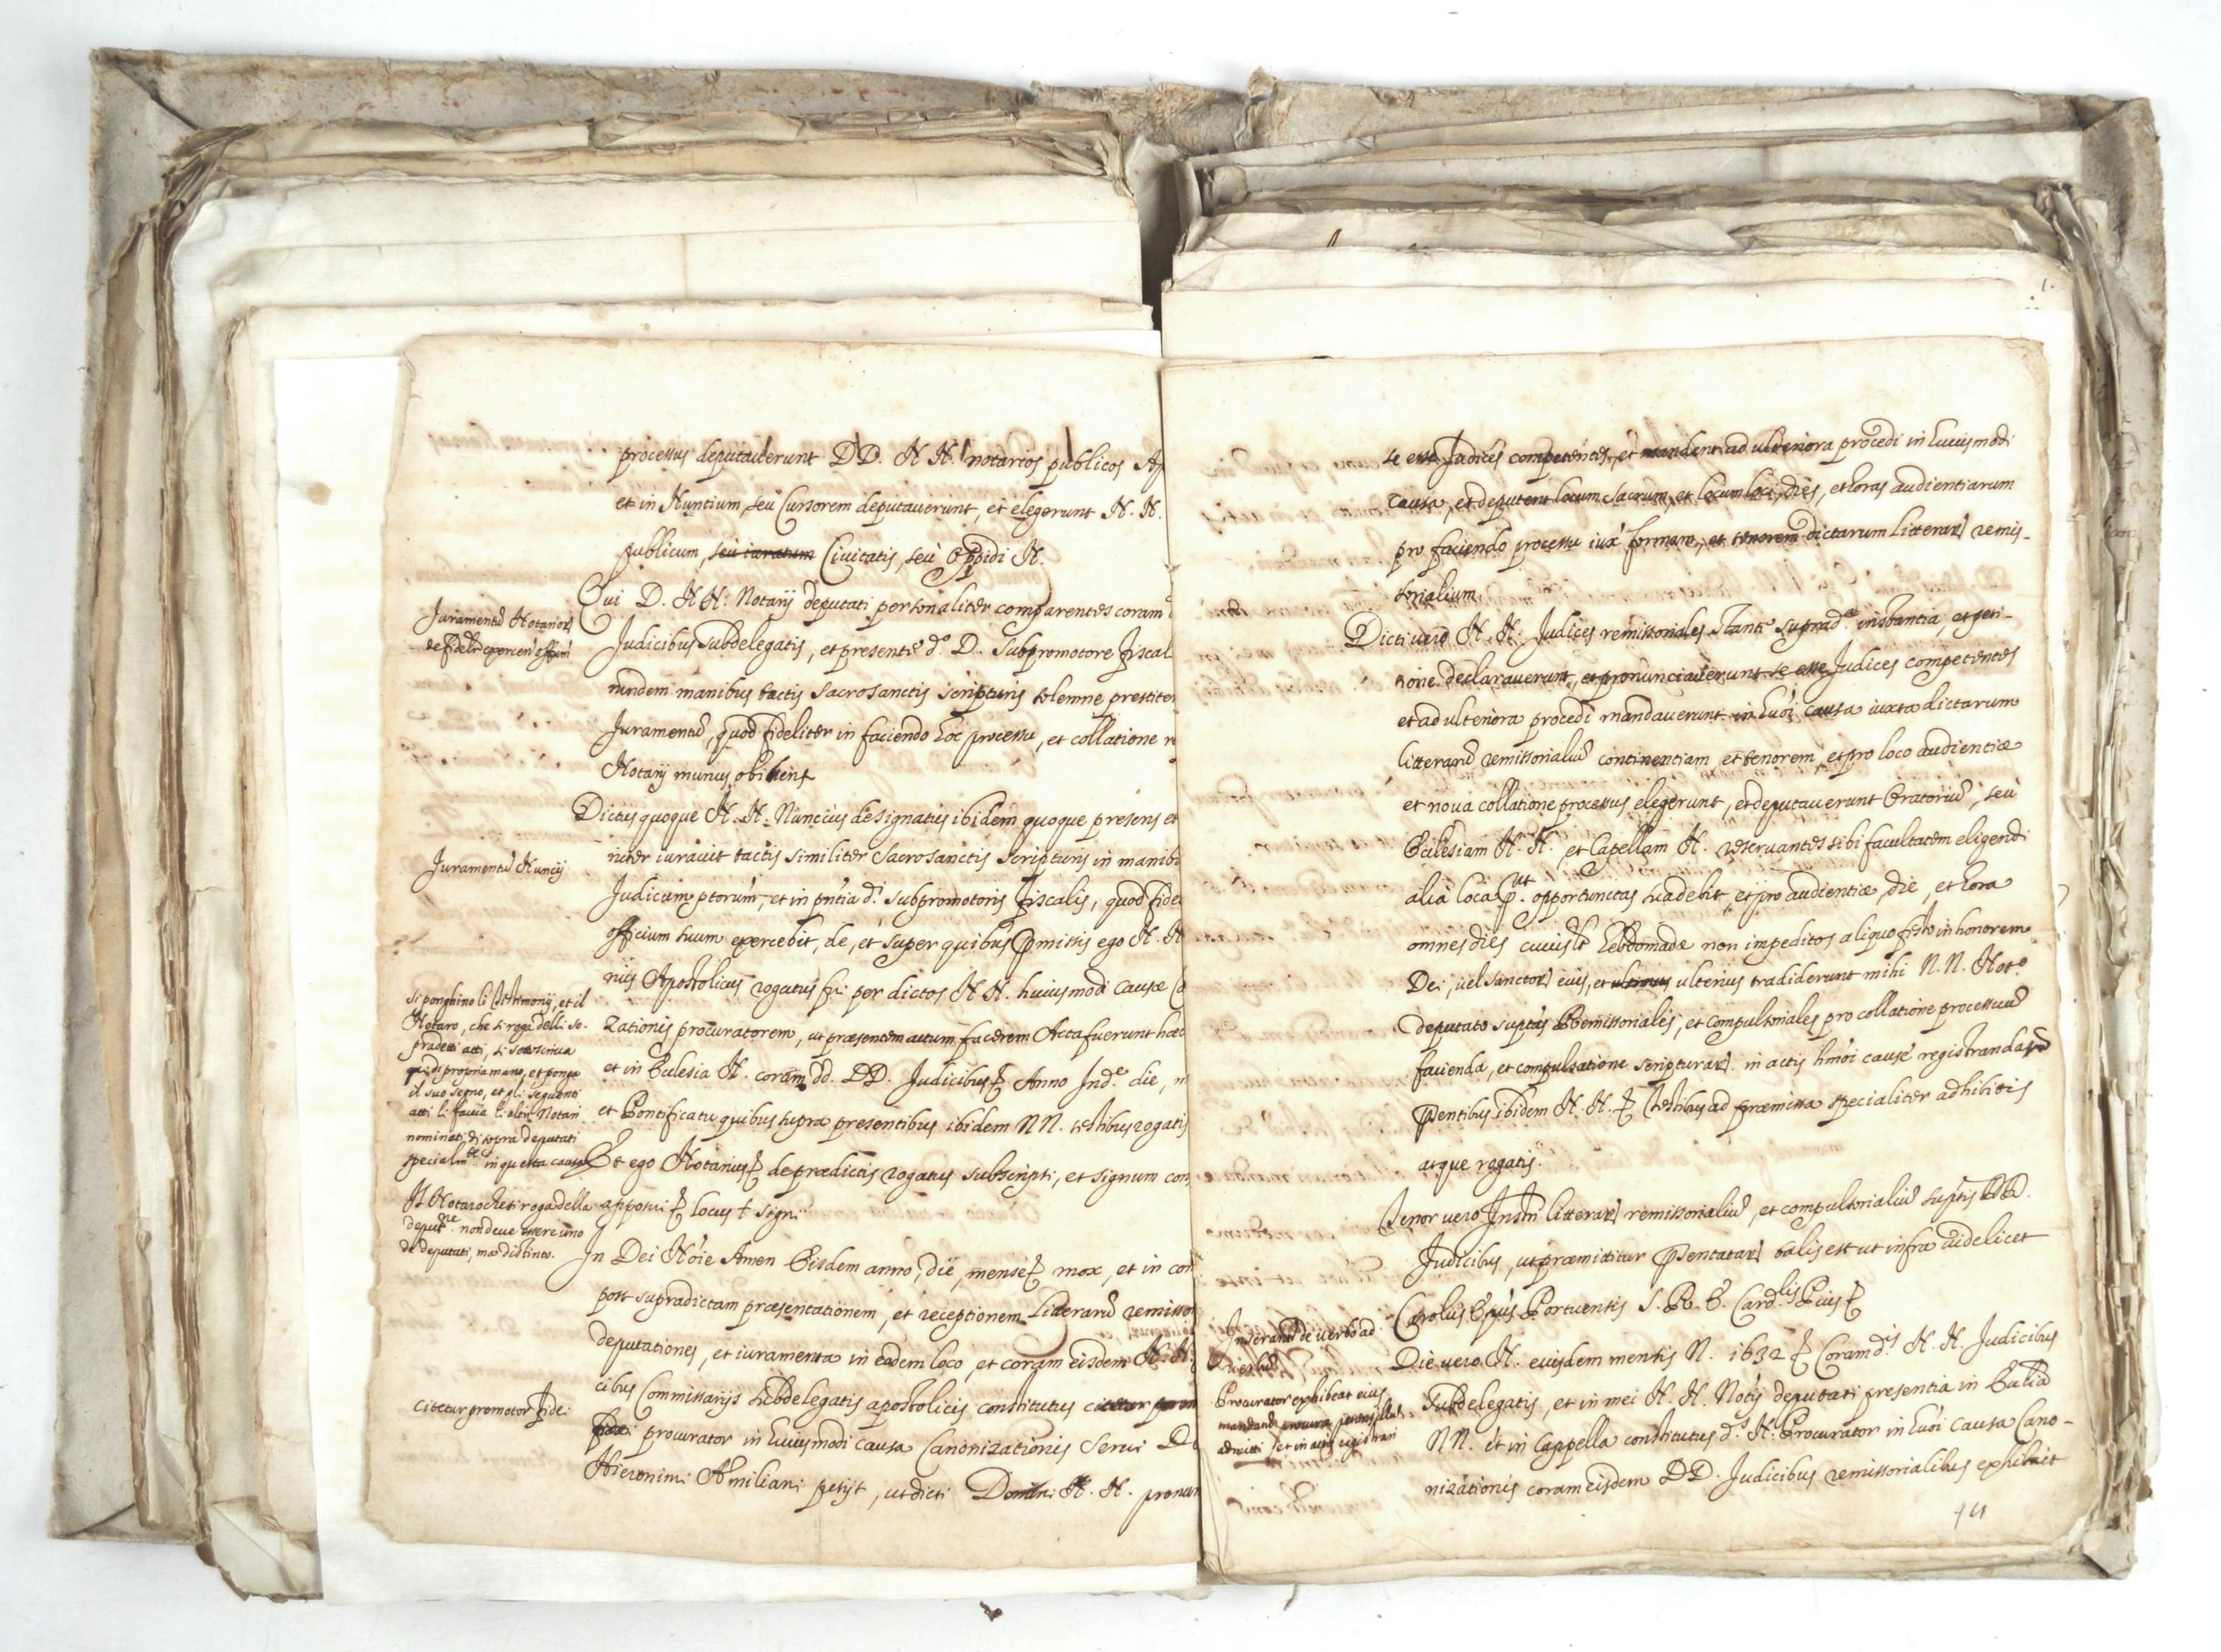 processus deputauerunt DD. N N. notarios publicos Ap
et in Nuntium, seu Cursorem deputauerunt, et elegerunt N. N.
publicum, seu iuratum Ciuitatis, seù Oppidi N.
Juramentũ Notarior
de fidelr exercen offm
Qui D. N N: Notarij deputati personaliter comparentes coram d
Judicibus subdelegatis, et presente d.º D. Subpromotore Fiscal
rundem manibus tactis sacrosanctis scripturis solemne prestiter
Juramentũ, quod fideliter in faciendo hoc processu, et collatione
Notarij munus obibunt
Dictus quoque N. N. Nuncius designatus ibidem quoque presens et
Juramentũ Nuncij
niter iurauit tactis similiter sacrosanctis scripturis in manib
Judicum ptorum, et in pñtia d.i subpromotoris Fiscalis, quod fide
officium suum exercebit, de, et super quibus pmissis ego N. N
rius Apostolicus rogatus fui per dictos N N. huiusmodi Causæ Ca
Si ponghino li Testimonij, et il
Notaro, che si rogò delli so-
pradetti atti, si sottoscriua
qui di propria mano, et ponga
il suo segno, et gli seguenti
atti li faccia l'altro Notari
nominati di sopra deputati
specialm.te in questa causa
zationis procuratorem, ut præsentem actum facerem Acta fuerunt hæc
et in Ecclesia N. coram dd. DD. Judicibus Anno Ind.e die, m
et Pontificatu quibus supra presentibus ibidem NN. testibus rogatis
Et ego Notarius de prædictis rogatus subscripsi, et signum con
Il Notaro che si roga della
deput.ne non deue essere uno
de deputati, ma distinto.
apposui locus + signi
In Dei Nõie Amen Eisdem anno, die, mense mox, et in con
post supradictam præsentationem, et receptionem litterarũ remisso
deputationes, et iuramenta in eodem loco, et coram eisdem N. N.
cibus Commissarijs subdelegatis apostolicis constitutus citetur prom
citetur promotor Fidei
fidei procurator in huiusmodi causa Canonizationis Serui D
Hieronimi Æmiliani petijt, ut dicti Domini N. N. pronun
se esse Judices competentes, et mandent ad ulteriora procedi in huiusmodi
causa, et deputent locum sacrum, et locum loci, dies, et horas audientiarum
pro faciendo processu iux formam, et tenorem dictarum litterar remis-
sorialium
Dicti uero N. N. Judices remissoriales stante suprad.a instantia, et peti-
tione declarauerunt, et pronunciauerunt se esse Judices competentes
et ad ulteriora procedi mandauerunt in huõi causa iuxta dictarum
litterarũ remissorialiũ continentiam et tenorem, et pro loco audientiæ
et noua collatione processus elegerunt, et deputauerunt Oratoriũ, seù
Ecclesiam N. N. et Capellam N. reseruantes sibi facultatem eligendi
alia loca p.ut opportunitas suadebit, et pro audientiæ die, et hora
omnes dies cuiuslt hebdomadæ non impeditos aliquo festo in honorem
Dei, uel sanctor eius, et ulterius tradiderunt mihi N. N. Not.o
deputato suptas Remissoriales, et compulsoriales pro collatione processuũ
facienda, et compulsatione scripturar in actis hmõi causæ registrandas
psentibus ibidem N. N. Testibus ad præmissa specialiter adhibitis
atque rogatis.
Tenor uero Instri litterar remissorialiũ, et compulsorialiũ suptis DD.
Judicibus, ut præmittitur psentatar talis est ut infra uidelicet
Inserant de uerbo ad
uerbũ
Carolus Epũs Portuensis S. R. E. Card.lis Pius
Die uero N. eiusdem mensis N. 1632 Coram d.is N. N. Judicibus
Procurator exhibeat eius
mandatũ procuræ petens illud
admitti, et in actis registrari
subdelegatis, et in mei N. N. Notij deputati presentia in
NN. et in Cappella constitutus d.s N. Procurator in huõi causa Cano-
nizationis coram eisdem DD. Judicibus remissorialibus exhibuit